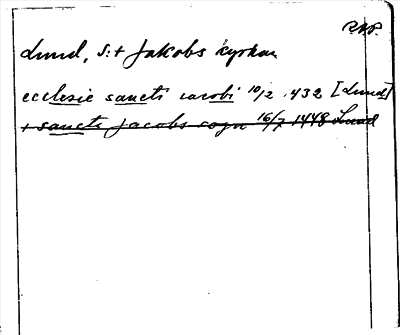 RAP.
Lund, S:t Jakobs kyrkan
ecclesie sancti iacobi 10/2 1432 [Lund]
+ sancte Jacobs sogn 16/7 1448 Lund